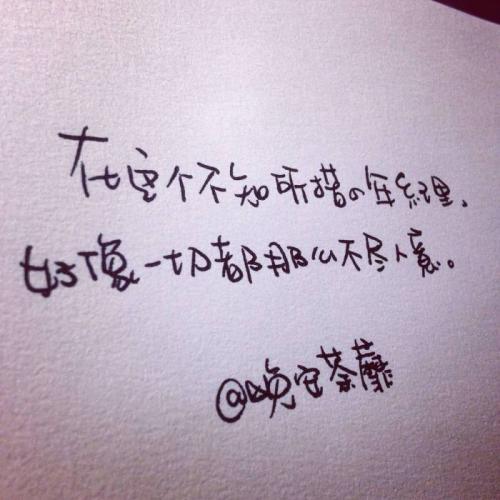 在这个不知所措的年纪里.
好像一切都那么不尽人意。
@晚安荼蘼